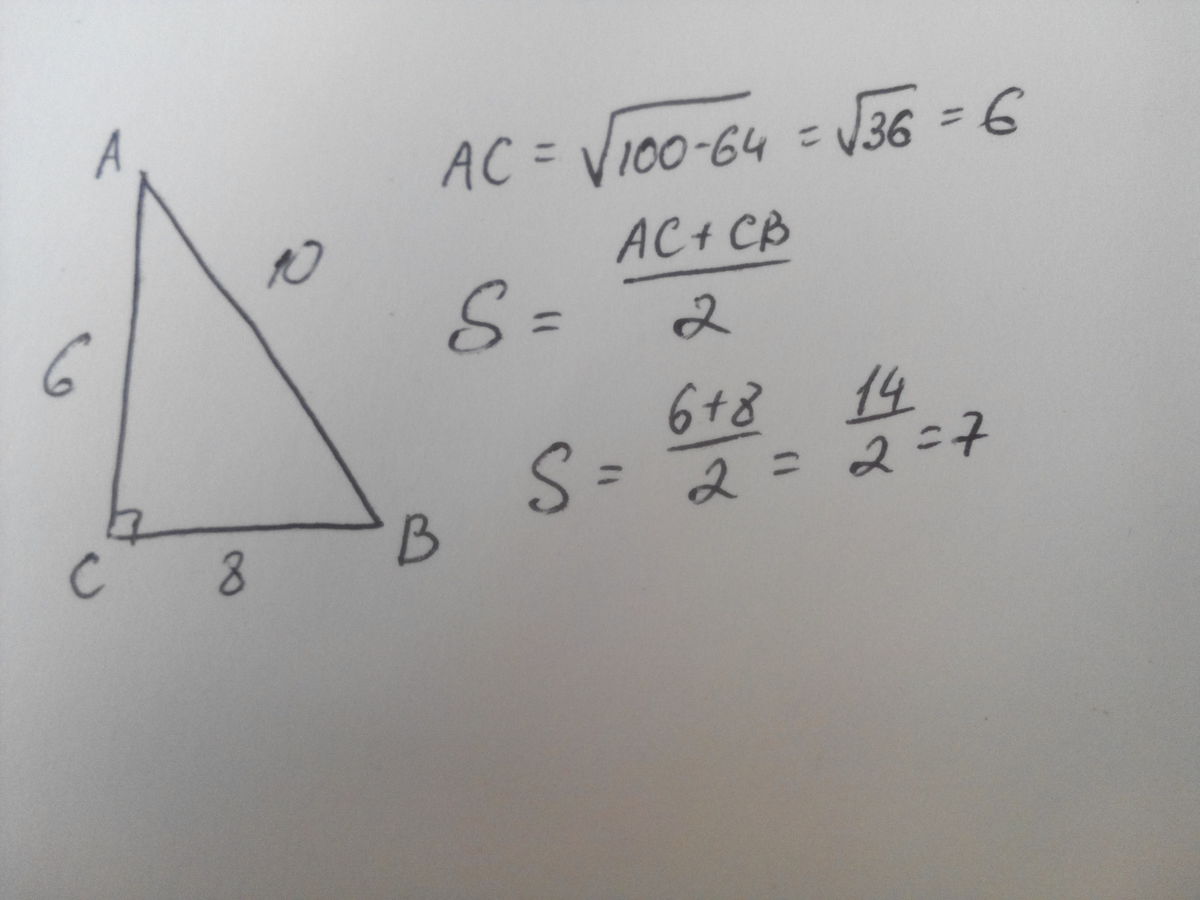 A
10
6
C
8
B
AC = √100-64 = √36 = 6
S = AC + CB / 2
S = 6+8 / 2 = 14 / 2 = 7